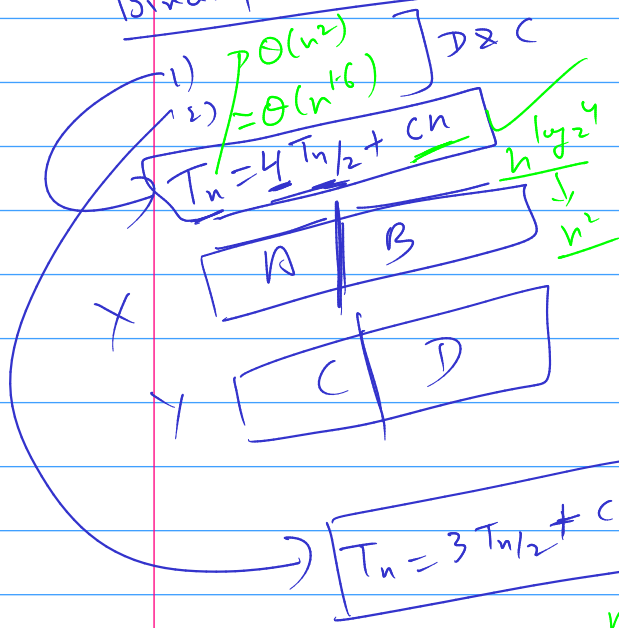 1) Θ(n²) ] D & C
2) ≈ Θ(n^1.6)
Tn = 4 Tn/2 + cn
n^log₂4
↓
n²
A | B
X
C | D
Y
Tn = 3 Tn/2 + c